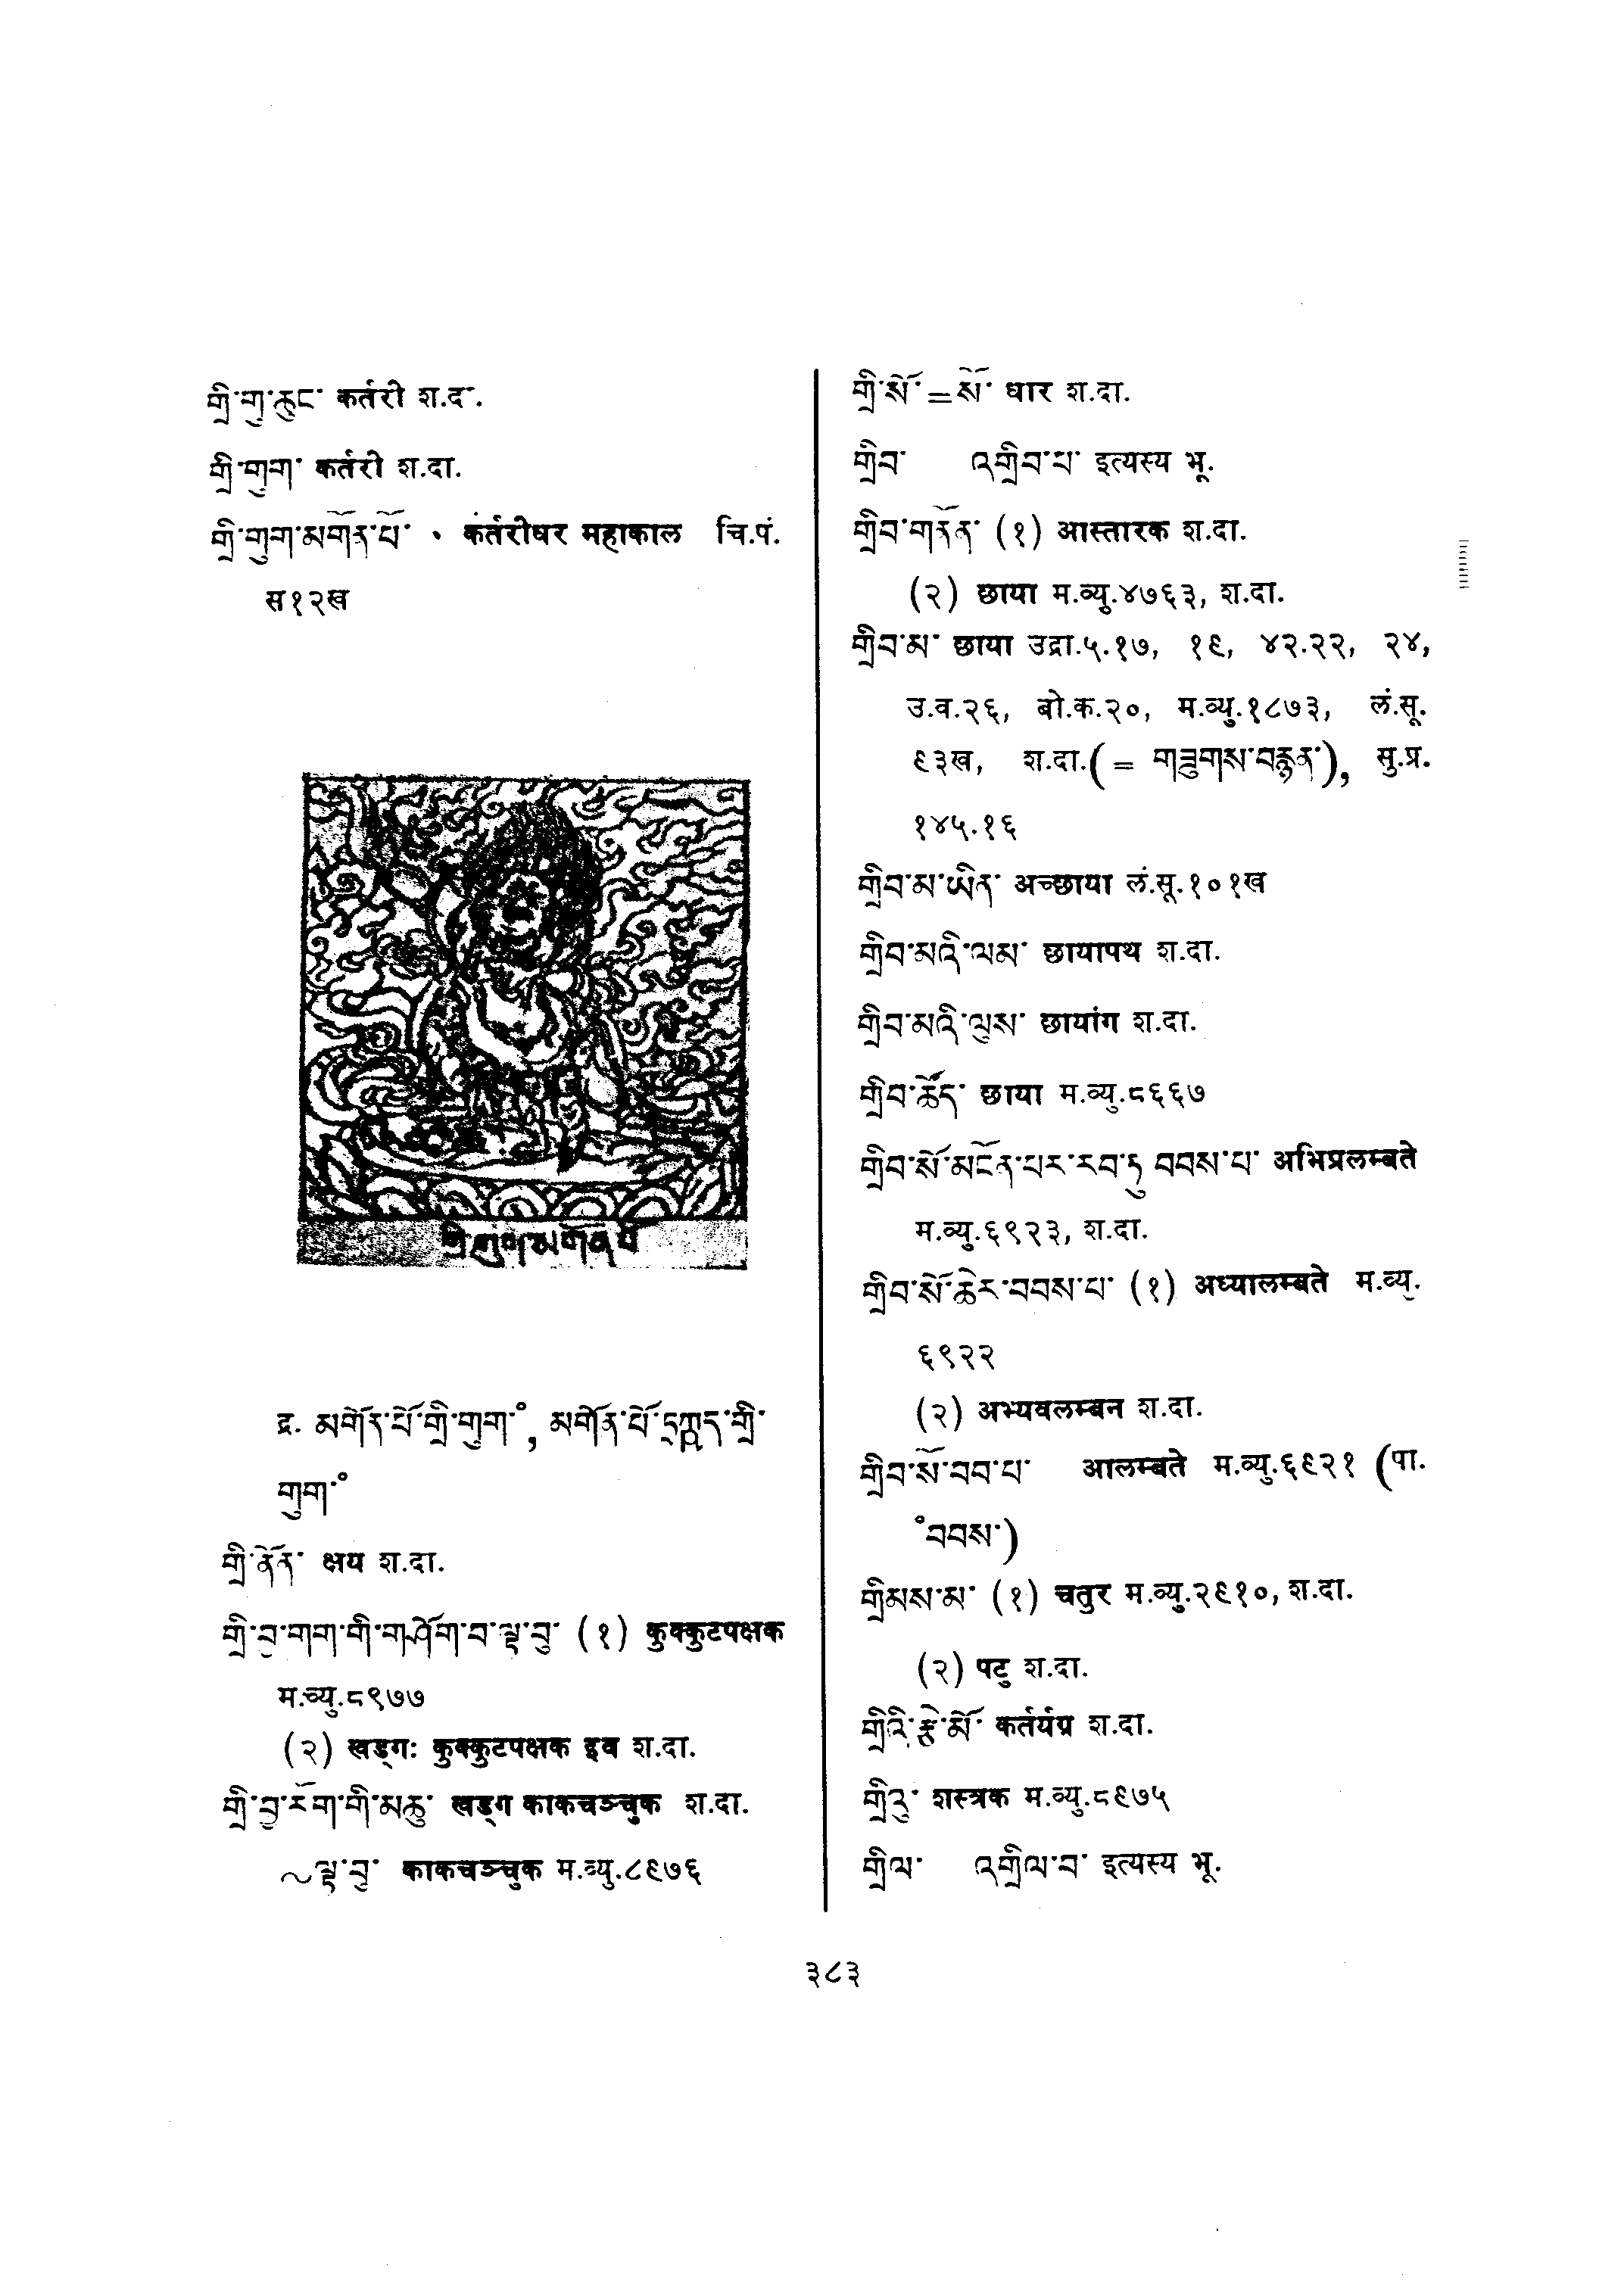 གྲི་གུ་ཆུང་ कर्तरी श.द.
གྲི་གུག་ कर्तरी श.दा.
གྲི་གུག་མགོན་པོ་ · कर्तरीधर महाकाल चि.पं.
स१२ख
གྲི་གུག་མགོན་པོ
द्र. མགོན་པོ་གྲི་གུག་॰, མགོན་པོ་དཀྲད་གྲི་
གུག་॰
གྲི་ནོན་ क्षय श.दा.
གྲི་བྱ་གག་གི་གཤོག་བ་ལྟ་བུ་ (१) कुक्कुटपक्षक
म.व्यु.८९७७
(२) खड्गः कुक्कुटपक्षक इव श.दा.
གྲི་བྱ་རོག་གི་མཆུ་ खड्ग काकचञ्चुक श.दा.
~ལྟ་བུ་ काकचञ्चुक म.व्यु.८९७६
གྲི་སོ་=སོ་ धार श.दा.
གྲིབ་ འགྲིབ་པ་ इत्यस्य भू.
གྲིབ་གནོན་ (१) आस्तारक श.दा.
(२) छाया म.व्यु.४७६३, श.दा.
གྲིབ་མ་ छाया उद्रा.५.१७, १९, ४२.२२, २४,
उ.व.२६, बो.क.२०, म.व्यु.१८७३, लं.सू.
९३ख, श.दा.(= གཟུགས་བརྙན་), सु.प्र.
१४५.१६
གྲིབ་མ་ཡིན་ अच्छाया लं.सू.१०१ख
གྲིབ་མའི་ལམ་ छायापथ श.दा.
གྲིབ་མའི་ལུས་ छायांग श.दा.
གྲིབ་ཚོད་ छाया म.व्यु.८६६७
གྲིབ་སོ་མངོན་པར་རབ་ཏུ བབས་པ་ अभिप्रलम्बते
म.व्यु.६९२३, श.दा.
གྲིབ་སོ་ཆེར་བབས་པ་ (१) अध्यालम्बते म.व्यु.
६९२२
(२) अभ्यवलम्बन श.दा.
གྲིབ་སོ་བབ་པ་ आलम्बते म.व्यु.६९२१ (पा.
॰བབས་)
གྲིམས་མ་ (१) चतुर म.व्यु.२९१०, श.दा.
(२) पटु श.दा.
གྲིའི་རྩེ་མོ་ कर्तर्यग्र श.दा.
གྲིའུ་ शस्त्रक म.व्यु.८९७५
གྲིལ་ འགྲིལ་བ་ इत्यस्य भू.
३८३